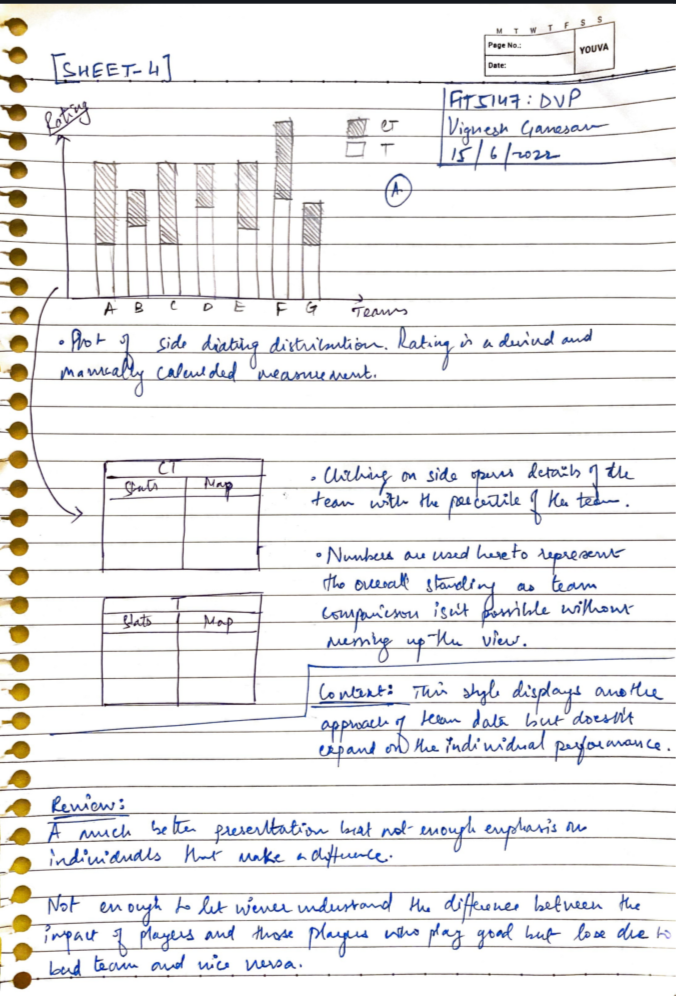 M T W T F S S
Page No.:
YOUVA
Date:
[SHEET-4]
FIT5147: DVP
Vignesh Ganesan
15/6/2022
Rating
CT
T
A
A B C D E F G Teams
• Plot of side diating distribution. Rating is a derived and
manually calculated measurement.
CT
Stats Map
• Clicking on side opens details of the
team with the percentile of the team.
• Numbers are used here to represent
the overall standing as team
comparison isn't possible without
messing up the view.
T
Stats Map
Context: This style displays another
approach of team data but doesn't
expand on the individual performance.
Review:
A much better presentation but not enough emphasis on
individuals that make a difference.
Not enough to let viewer understand the difference between the
impact of players and those players who play good but lose due to
bad team and vice versa.